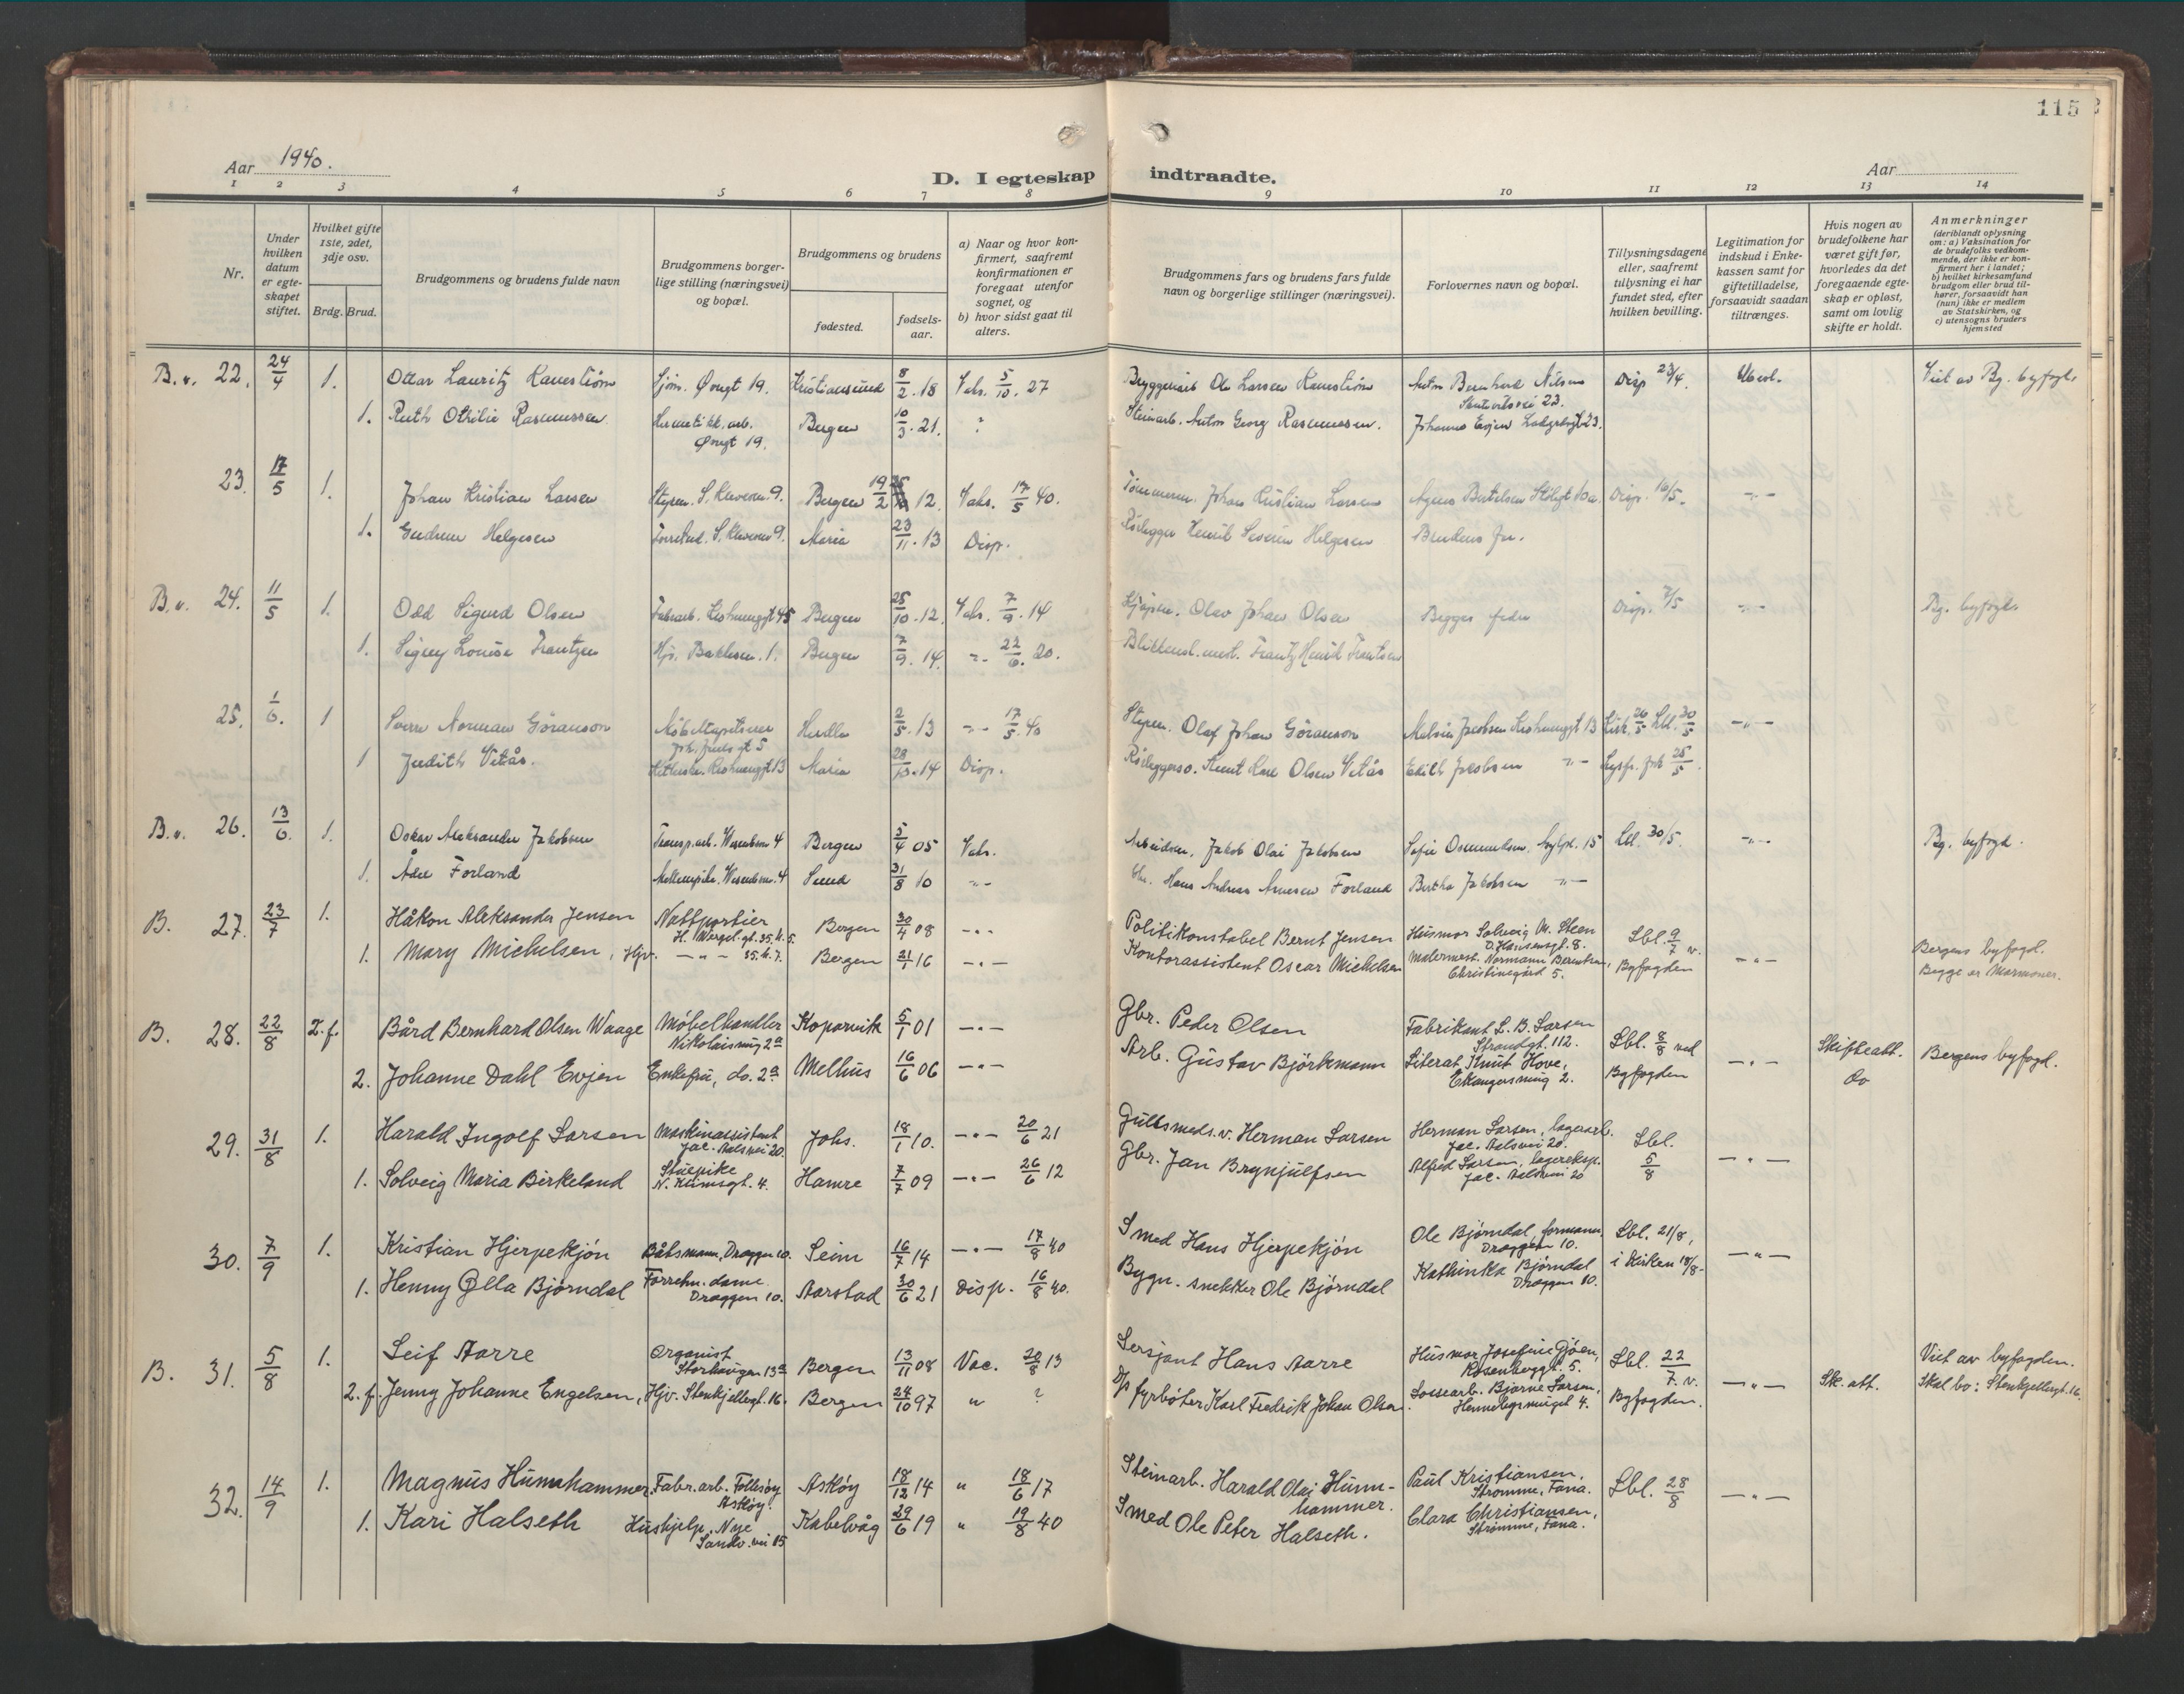 115
Aar 1940.
D. I egteskap indtraadte.
Aar
1 2 3 4 5 6 7 8 9 10 11 12 13 14
Nr.
Under hvilken datum er egteskapet stiftet.
Hvilket gifte 1ste, 2det, 3dje osv.
Brdg. Brud.
Brudgommens og brudens fulde navn
Brudgommens borgerlige stilling (næringsvei) og bopæl.
Brudgommens og brudens
fødested.
fødselsaar.
a) Naar og hvor konfirmert, saafremt konfirmationen er foregaat utenfor sognet, og
b) hvor sidst gaat til alters.
Brudgommens fars og brudens fars fulde navn og borgerlige stillinger (næringsvei).
Forlovernes navn og bopæl.
Tillysningsdagene eller, saafremt tillysning ei har fundet sted, efter hvilken bevilling.
Legitimation for indskud i Enkekassen samt for giftetilladelse, forsaavidt saadan tiltrænges.
Hvis nogen av brudefolkene har været gift før, hvorledes da det foregaaende egteskap er opløst, samt om lovlig skifte er holdt.
Anmerkninger (deriblandt oplysning om: a) Vaksination for de brudefolks vedkommende, der ikke er konfirmert her i landet; b) hvilket kirkesamfund brudgom eller brud tilhører, forsaavidt han (hun) ikke er medlem av Statskirken, og c) utensogns bruders hjemsted
B. v. 22. 24/4 1. Ottar Lauritz Kanestrøm Sjøm. Øvregt 19. Kristiansund 8/2. 18 Vaks. 5/10. 27 Bryggeriarb Ole Larsen Kanestrøm Anton Bernhard Nilsen Disp 23/4. Viet av Bg. byfogd.
1. Ruth Othilie Rasmussen Hermetikk. arb. Øvregt 19. Bergen 10/3. 21. ? Steinarb. Anton Georg Rasmussen. Johannes Evjen
23. 17/5 1. Johan Kristian Larsen Bergen 19/2 12. Vaks. 17/5 40. Johan Kristian Larsen Disp. 16/5. -"-
1. Gudrun Helgesen Maria 23/11. 13 Disp. Rørlegger Henrik Severin Helgesen Brudens far.
B. v. 24. 11/5 1. Odd Sigurd Olsen Bergen 25/10. 12. Vaks. 7/9. 14 Olav Johan Olsen Begges fedre Disp. 7/5 -"- Bg. byfogd.
1. Signy Louise Frantzen Bergen 7/9. 14. -"- 22/6. 20. Frantz Henrik Frantzen
25. 1/6. 1 Sverre Norman Göranson Herdla 2/5. 13 -"- 17/5. 40 Styrm. Olaf Johan Göranson -"-
1 Judith Vetås. Maria 28/10. 14 Disp. Knut Karl Olsen Vetås Edith Jacobsen -"-
B. v. 26. 13/6. 1. Oskar Aleksander Jakobsen Transp.arb. Bergen 5/4 05 Vaks. Arbeidsm. Jakob Olai Jakobsen Lbl. 30/5. -"- Bg. byfogd.
1. Åse Forland Sund 31/8 10 -"- Gbr. Hans Andreas Arnesen Forland Bertha Jakobsen -"-
B. 27. 23/7 1. Håkon Aleksander Jensen Nattportier H. Wergel. gt. 35. k. 5. Bergen 30/4 08 -"- Politikonstabel Bernt Jensen Husmor Solveig M. Steen D. Hansensgt. 8. Lbl. 9/7 v. Byfogden -"- Bergens byfogd.
1. Mary Michelsen, Hjv. -"- 35. k. 7. Bergen 21/1 16 -"- Kontorassistent Oscar Michelsen Malermest. Normann Berentsen, Christinegård 5. Begge er Mormoner.
B. 28. 22/8 2. f. Bård Bernhard Olsen Waage Møbelhandler Nikolaismug 2a Kopervik 5/1 01 -"- Gbr. Peder Olsen Fabrikant L. B. Larsen Strandgt. 112. Lbl. 8/8 ved Byfogden -"- Skifteatt. Bergens byfogd.
2. Johanne Dahl Evjen Enkefru, do. 2a Melhus 16/6 06 -"- Arb. Gustav Björkmann Literat Knut Hove, Ekangersmug 2. do
29. 31/8 1. Harald Ingolf Larsen Maskinassistent Jac. Aalsvei 20. Johs. 18/1 10. -"- 20/6 21 Gullsmeds.v. Herman Larsen Herman Larsen, lagerarb. Jac. Aalsvei 20. Lbl. 5/8 -"-
1. Solveig Maria Birkeland Stuepike N. Krimsgt. 4. Hamre 7/7 09 -"- 26/6 12 Gbr. Jan Brynjulfsen Alfred Larsen, lagereksp. Jac. Aalsvei 20
30. 7/9 1. Kristian Hjerpekjøn Båtsmann, Dræggen 10. Seim 16/7 14 -"- 17/8 40 Smed Hans Hjerpekjøn Ole Bjørndal, formann, Dræggen 10. Lbl. 21/8, i Kirken 18/8- -"-
1. Henny Ella Bjørndal Forretn. dame Dræggen 10. Aarstad 30/6 21 Disp. 16/8 40. Bygn. snekker Ole Bjørndal Kathinka Bjørndal Dræggen 10.
B. 31. 5/8 1. Leif Aarre Organist Storhaugen 13a Bergen 13/11 08 Vac. 20/8 13 Sersjant Hans Aarre Husmor Josefine Gjøen, Rosenberggt. 5. Lbl. 22/7. v. Byfogden. -"- Sk. att. Viet av byfogden.
2. f. Jenny Johanne Engelsen, Hjv. Stenkjellergt. 16. Bergen 24/10 97 " ? D/s fyrbøter Karl Fredrik Johan Olsen. Lossearb. Bjarne Larsen, Hennebysmuget 4. Skal bo: Stenkjellergt. 16.
32. 14/9 1. Magnus Humhammer Fabr. arb. Follesøy Askøy. Askøy 18/12 14 " 18/6 17 Steinarb. Harald Olai Humhammer. Paul Kristiansen, Strømme, Fana. Lbl. 28/8 -"-
1. Kari Halseth Hushjelp. Nye Sandv. vei 15 Kabelvåg 29/6 19 " 19/8 40 Smed Ole Peter Halseth. Clara Christiansen, Strømme, Fana.